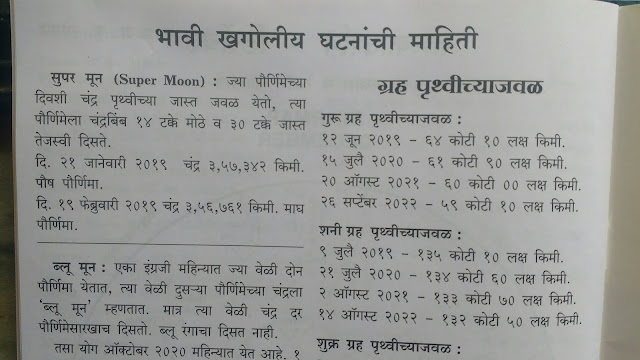 भावी खगोलीय घटनांची माहिती
सुपर मून (Super Moon) : ज्या पौर्णिमेच्या
दिवशी चंद्र पृथ्वीच्या जास्त जवळ येतो, त्या
पौर्णिमेला चंद्रबिंब १४ टक्के मोठे व ३० टक्के जास्त
तेजस्वी दिसते.
दि. २१ जानेवारी २०१९ चंद्र ३,५७,३४२ किमी.
पौष पौर्णिमा.
दि. १९ फेब्रुवारी २०१९ चंद्र ३,५६,७६१ किमी. माघ
पौर्णिमा.
ब्लू मून : एका इंग्रजी महिन्यात ज्या वेळी दोन
पौर्णिमा येतात, त्या वेळी दुसऱ्या पौर्णिमेच्या चंद्राला
'ब्लू मून' म्हणतात. मात्र त्या वेळी चंद्र दर
पौर्णिमेसारखाच दिसतो. ब्लू रंगाचा दिसत नाही.
तसा योग ऑक्टोबर २०२० महिन्यात येत आहे. १
ग्रह पृथ्वीच्याजवळ
गुरू ग्रह पृथ्वीच्याजवळ :
१२ जून २०१९ - ६४ कोटी १० लक्ष किमी.
१५ जुलै २०२० - ६१ कोटी ९० लक्ष किमी.
२० ऑगस्ट २०२१ - ६० कोटी ०० लक्ष किमी.
२६ सप्टेंबर २०२२ - ५९ कोटी १० लक्ष किमी.
शनी ग्रह पृथ्वीच्याजवळ :
९ जुलै २०१९ - १३५ कोटी १० लक्ष किमी.
२१ जुलै २०२० - १३४ कोटी ६० लक्ष किमी.
२ ऑगस्ट २०२१ - १३३ कोटी ७० लक्ष किमी.
१४ ऑगस्ट २०२२ - १३२ कोटी ५० लक्ष किमी.
शुक्र ग्रह पृथ्वीच्याजवळ :